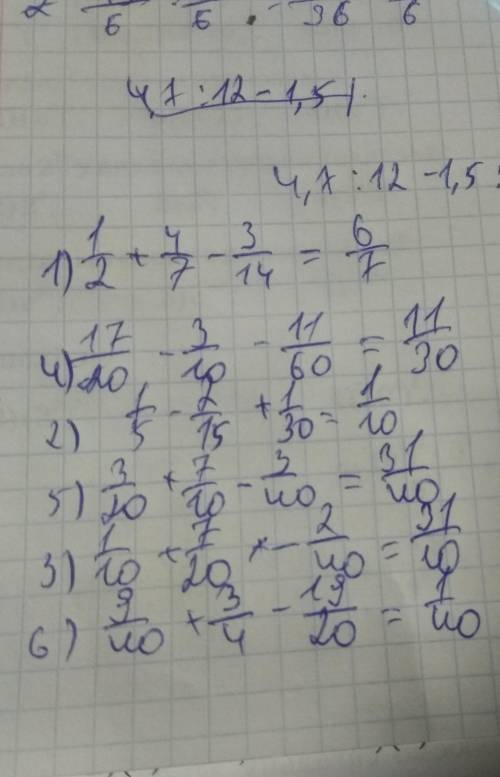 2 6 6 36 6
4,7 : 12 - 1,5
4,7 : 12 - 1,5 :
1) 1/2 + 4/7 - 3/14 = 6/7
4) 17/20 - 3/10 - 11/60 = 11/30
2) 1/5 - 2/15 + 1/30 = 1/10
5) 3/20 + 7/10 - 3/40 = 31/40
3) 1/10 + 7/20 + - 2/40 = 31/10
6) 9/40 + 3/4 - 19/20 = 1/40